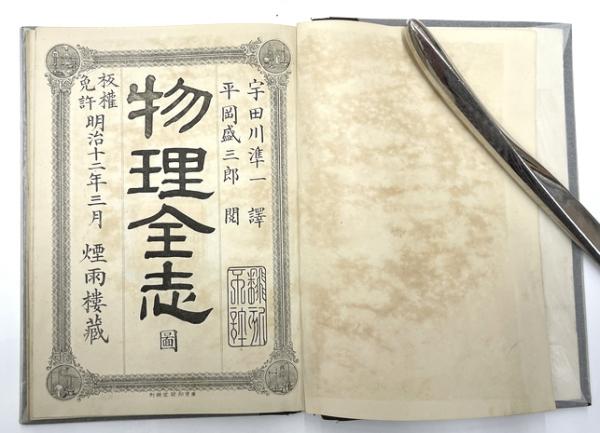 宇田川準一 譯
平岡盛三郎 閲
物理全志 圖
板權免許 明治十二年三月 煙雨樓藏
翻刻不許